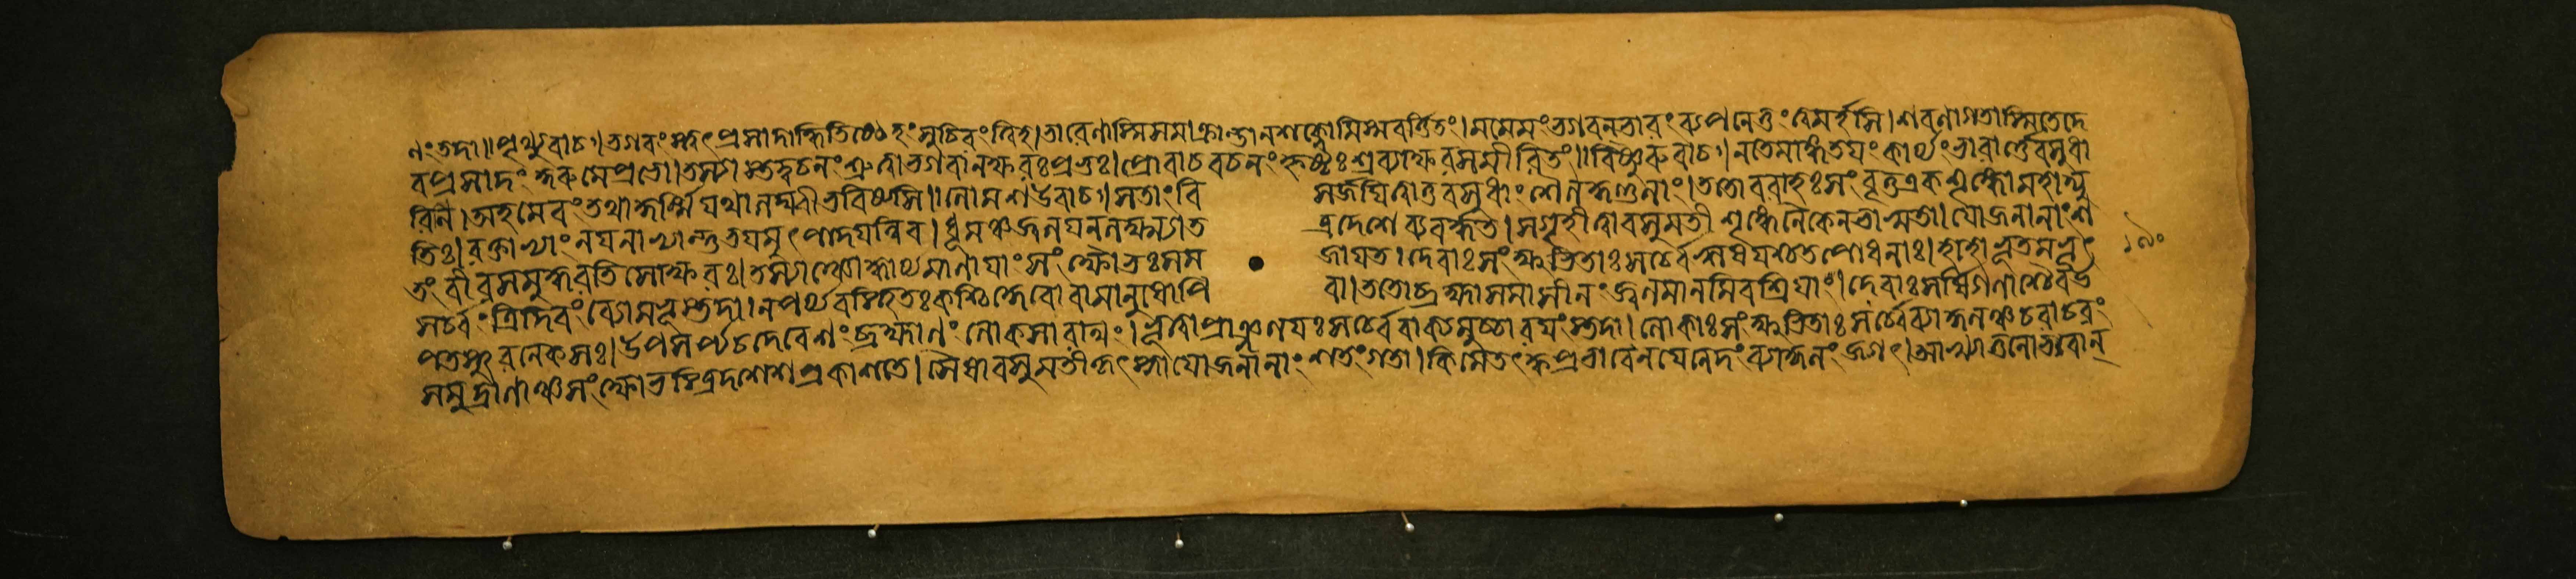 ণং তদা॥পৃথ্ব্যুবাচ।ভগবংস্ত্বৎপ্রসাদাদ্ধি তিষ্ঠেহং সুচিরং ত্বিহ।ভারেণাস্মি সমাক্রান্তা ন শক্নোমি স্ম বর্ত্তিতুং।মমেমং ভগবন্ভারং ব্যপনেতুং ত্বমর্হসি।শরণাগতাস্মি তে দে
ব প্রসাদং কুরু মে প্রভো।তস্যাস্তদ্বচনং শ্রুত্বা ভগবানক্ষরঃ প্রভুঃ।প্রোবাচ বচনং হৃষ্টঃ শ্রব্যাক্ষরসমীরিতং॥বিষ্ণুরুবাচ।ন তে মহি ভয়ং কার্য্যং ভারার্ত্তে বসুধা
রিণি।অহমেবং তথা কুর্ম্মি যথা লঘ্বী ভবিষ্যসি॥লোমশ উবাচ।স তাং বি সর্জয়িত্বা তু বসুধাং শৈলকুণ্ডলাং।ততো বরাহঃ সংবৃত্ত একশৃঙ্গো মহাদ্যু
তিঃ।রক্তাভ্যাং নয়নাভ্যান্তু ভয়মুৎপাদয়ন্নিব।ধূমঞ্চ জ্বলয়ন্ লক্ষ্ম্যা ত ত্র দেশে ব্যবর্দ্ধত।স গৃহীত্বা বসুমতীং শৃঙ্গেণৈকেন ভাস্বতা।যোজনানাং শ
তং বীর সমুদ্ধরতি সোক্ষরঃ।তস্যাঞ্চোদ্ধার্য্যমাণায়াং সংক্ষোভঃ সম জায়ত।দেবাঃ সংক্ষুভিতাঃ সর্ব্বে ঋষয়শ্চ তপোধনাঃ।হাহাভূতমভূৎ
সর্ব্বং ত্রিদিবং ব্যোম ভূস্তদা।ন পর্য্যবস্থিতঃ কশ্চিদ্দেবো বা মানুষোপি বা।ততো ব্রহ্মাণমাসীনং জ্বলমানমিব শ্রিয়া।দেবাঃ সর্ষিগণাশ্চৈব উ
পতস্থুরনেকশঃ।উপসর্প্য চ দেবেশং ব্রহ্মাণং লোকসাক্ষিণং।ভূত্বা প্রাঞ্জলয়ঃ সর্ব্বে বাক্যমুচ্চারয়ংস্তদা।লোকাঃ সংক্ষুভিতাঃ সর্ব্বে ব্যাকুলঞ্চ চরাচরং
সমুদ্রাণাঞ্চ সংক্ষোভস্ত্রিদশেশ প্রকাশতে।সৈষা বসুমতী কৃৎস্না যোজনানাং শতং গতা।কিমেতৎ কিংপ্রভাবেন যেনেদং ব্যাকুলং জগৎ।আখ্যাতু নো ভবান্